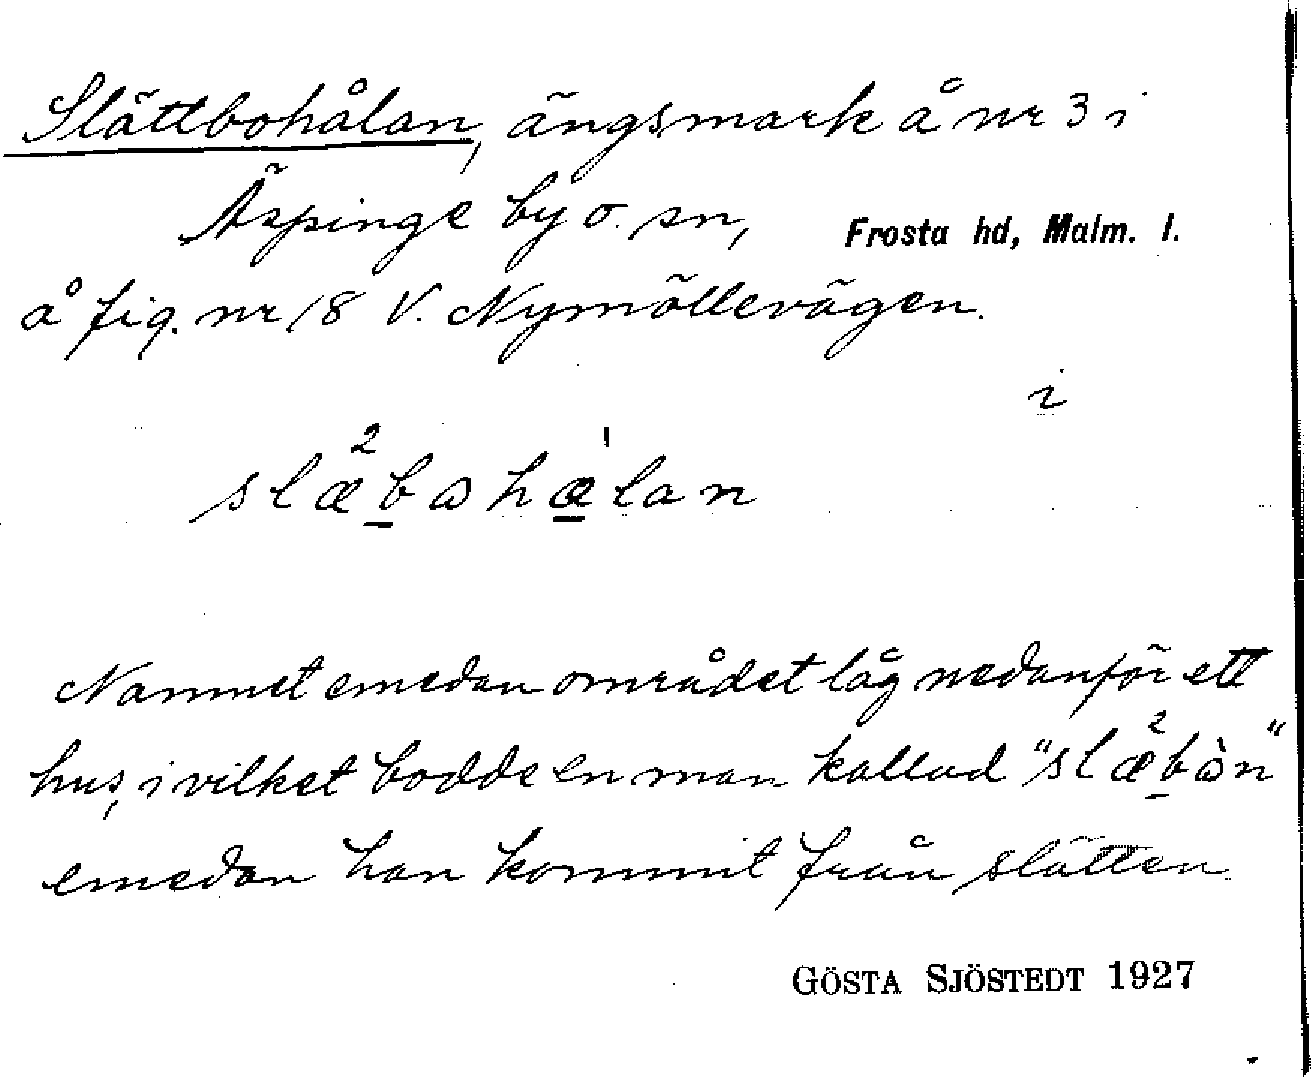 Slättbohålan, ängsmark å nr 3 i
Äspinge by o. sn, Frosta hd, Malm. l.
å fig. nr 18 V. Nymöllevägen.
i
slæ²bɷhæ̀lan
Namnet emedan området låg nedanför ett
hus, i vilket bodde en man kallad "slæ²bɷ̀n"
emedan han kommit från slätten.
GÖSTA SJÖSTEDT 1927